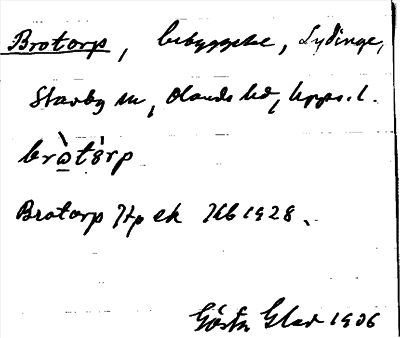 Brotorp, bebyggelse, Lydinge,
Stavby sn, Olands hd, Upps. l.
bròtårp
Brotorp Hp ek Hb 1928.
Gösta Glad 1936